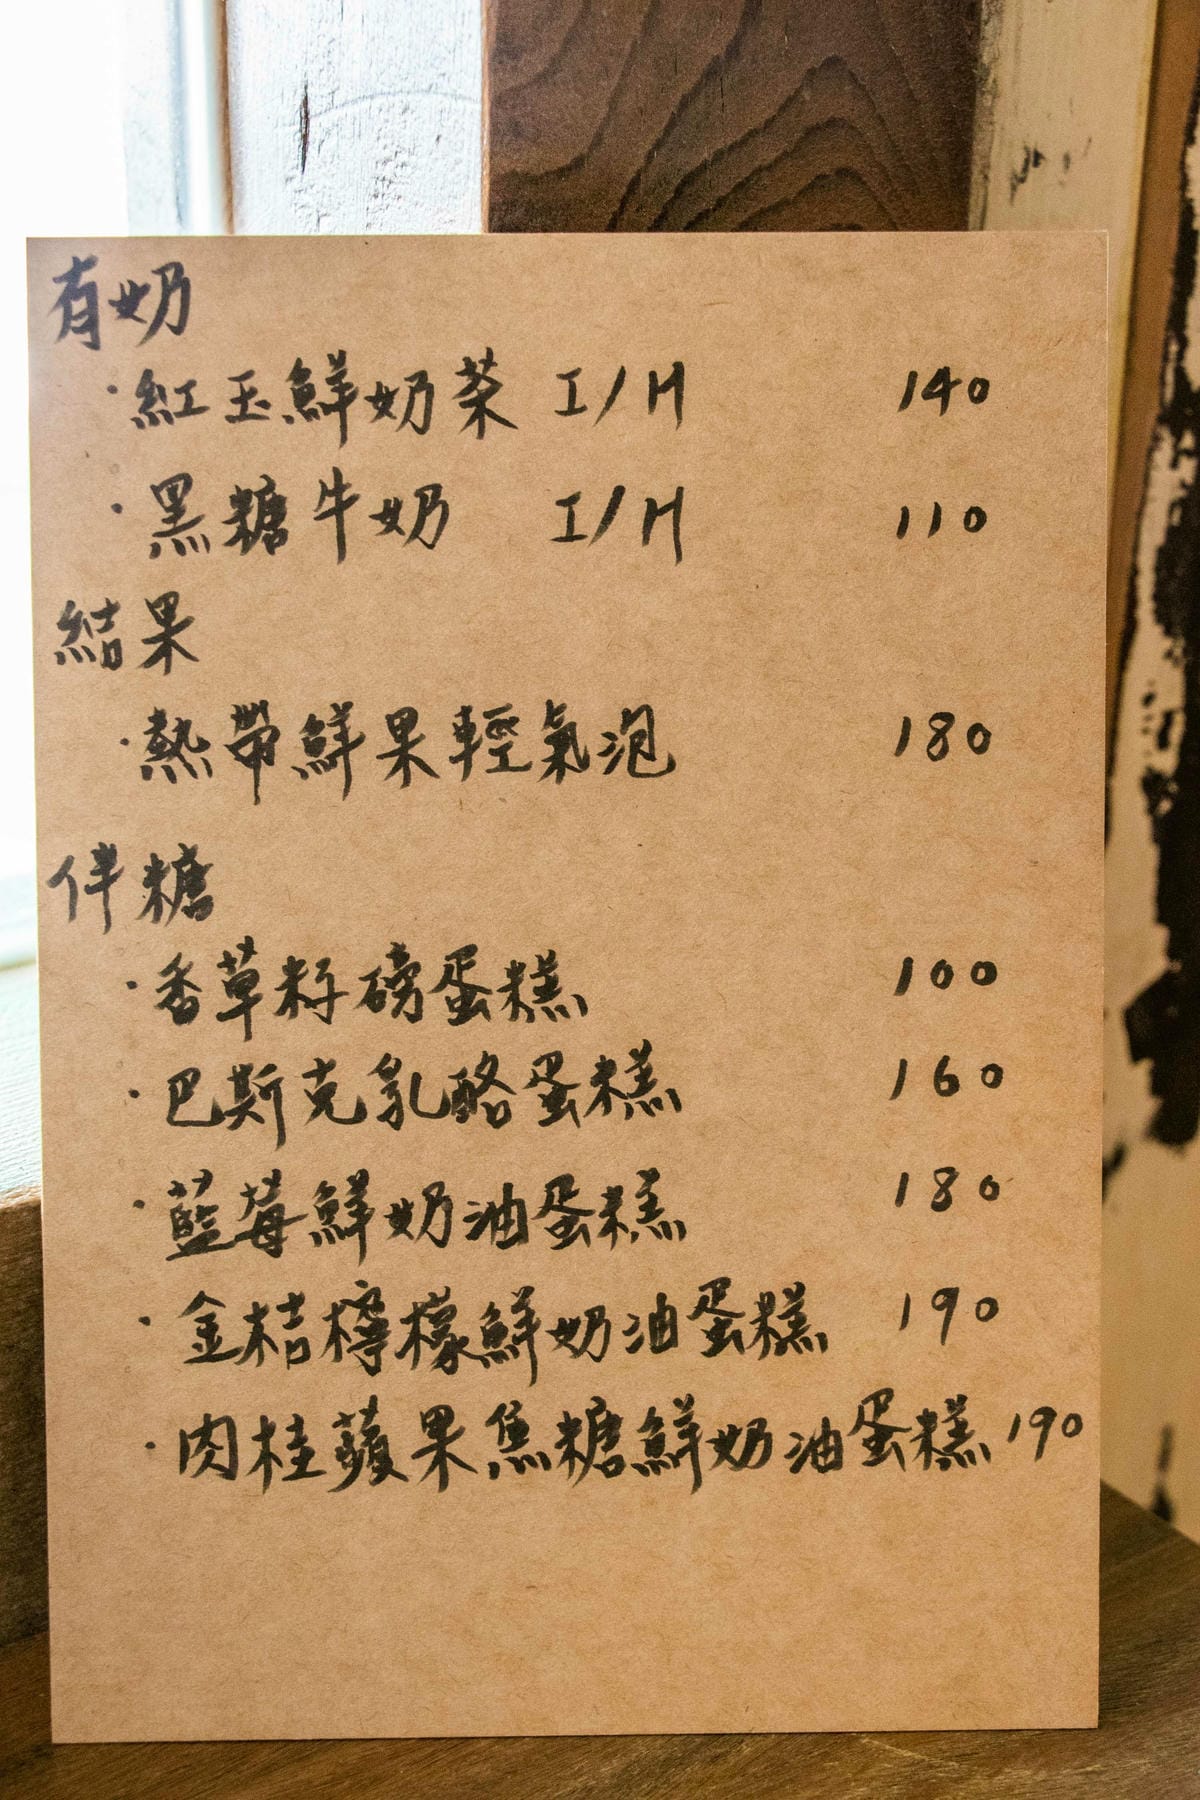 有奶
·紅玉鮮奶茶 I/H 140
·黑糖牛奶 I/H 110
結果
·熱帶鮮果輕氣泡 180
伴糖
·香草籽磅蛋糕 100
·巴斯克乳酪蛋糕 160
·藍莓鮮奶油蛋糕 180
·金桔檸檬鮮奶油蛋糕 190
·肉桂蘋果焦糖鮮奶油蛋糕 190